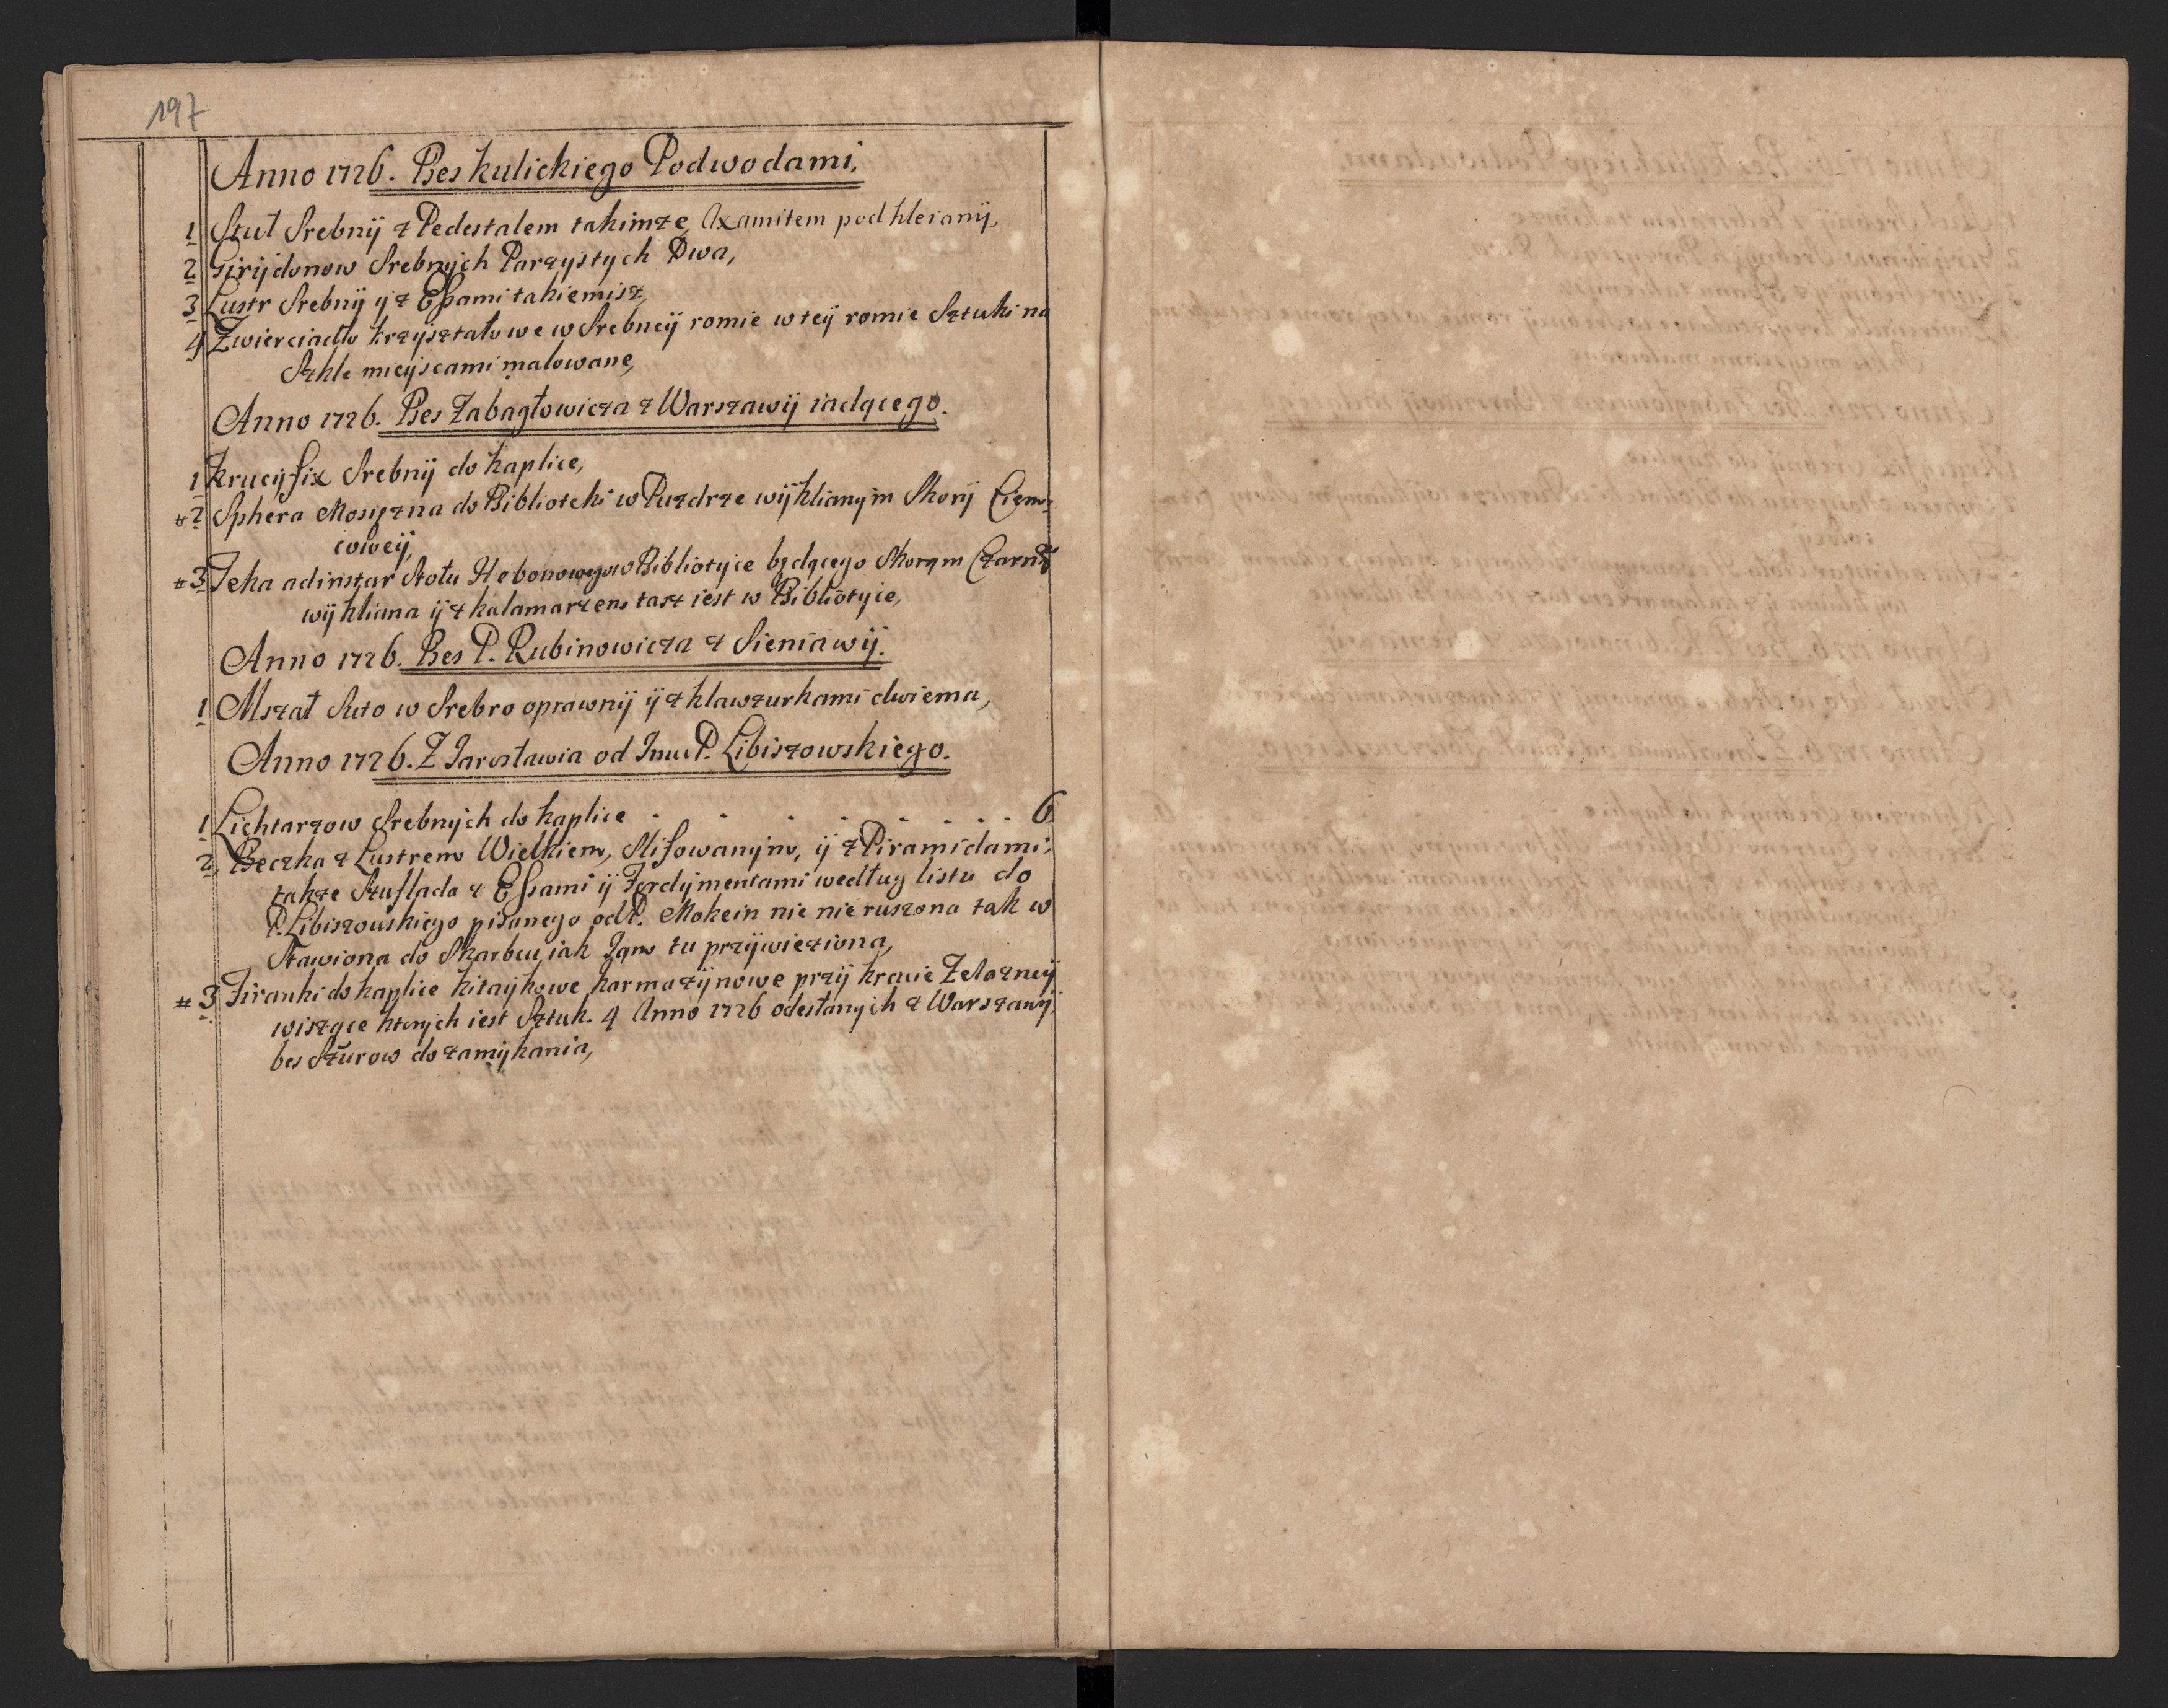 197
Anno 1726. Bes Kulickiego Podwodami.
1 Stuł Srebnÿ z Pedestalem takimze Axamitem podkleianÿ,
2 Girÿdonow Srebnych Parzystych Dwa,
3 Lustr Srebnÿ ÿ z Essami takiemisz,
4 Zwierciadło krzÿsztatowe w Srebneÿ romie w teÿ romie Sztuki na
Szkle mieÿscami malowane,
Anno 1726. Bes Zabagłowicza z Warszawÿ iadącego.
1 Krucÿfix Srebnÿ do kaplice,
# 2 Sphera Mosiężna do Biblioteki w Puzdrze wÿklianÿm Skorÿ Ciem-
coweÿ,
# 3 Teka adinstar Stołu Hebonowego w Bibliotyce będącego Skorąm Czarną
wÿkliana ÿ z kalamarzem tasz iest w Bibliotyce,
Anno 1726. Bes P. Rubinowicza z Sieniawÿ.
1 Mszał Suto w Srebro oprawnÿ ÿ z klawzurkami dwiema,
Anno 1726. Z Jarosławia od Imci P. Libiszowskiego.
1 Lichtarzow Srebnÿch do kaplice . . . . . . . . 6
2 Beczka z Lustrem Wielkiem, Slifowanÿm, ÿ z Piramidami,
takze Szuflada z Essami ÿ Ferdÿmentami według listu do
P. Libiszowskiego pisanego od P. Mokein nic nie ruszona tak w
Stawiona do Skarbcu iak Iąm tu przÿwieziona,
# 3 Firanki do kaplice kitaÿkowe karmazÿnowe przÿ kracie Zelazneÿ
wiszące ktorÿch iest Sztuk. 4 Anno 1726 odesłanÿch z Warszawÿ
bes Sżurow do zamÿkania,